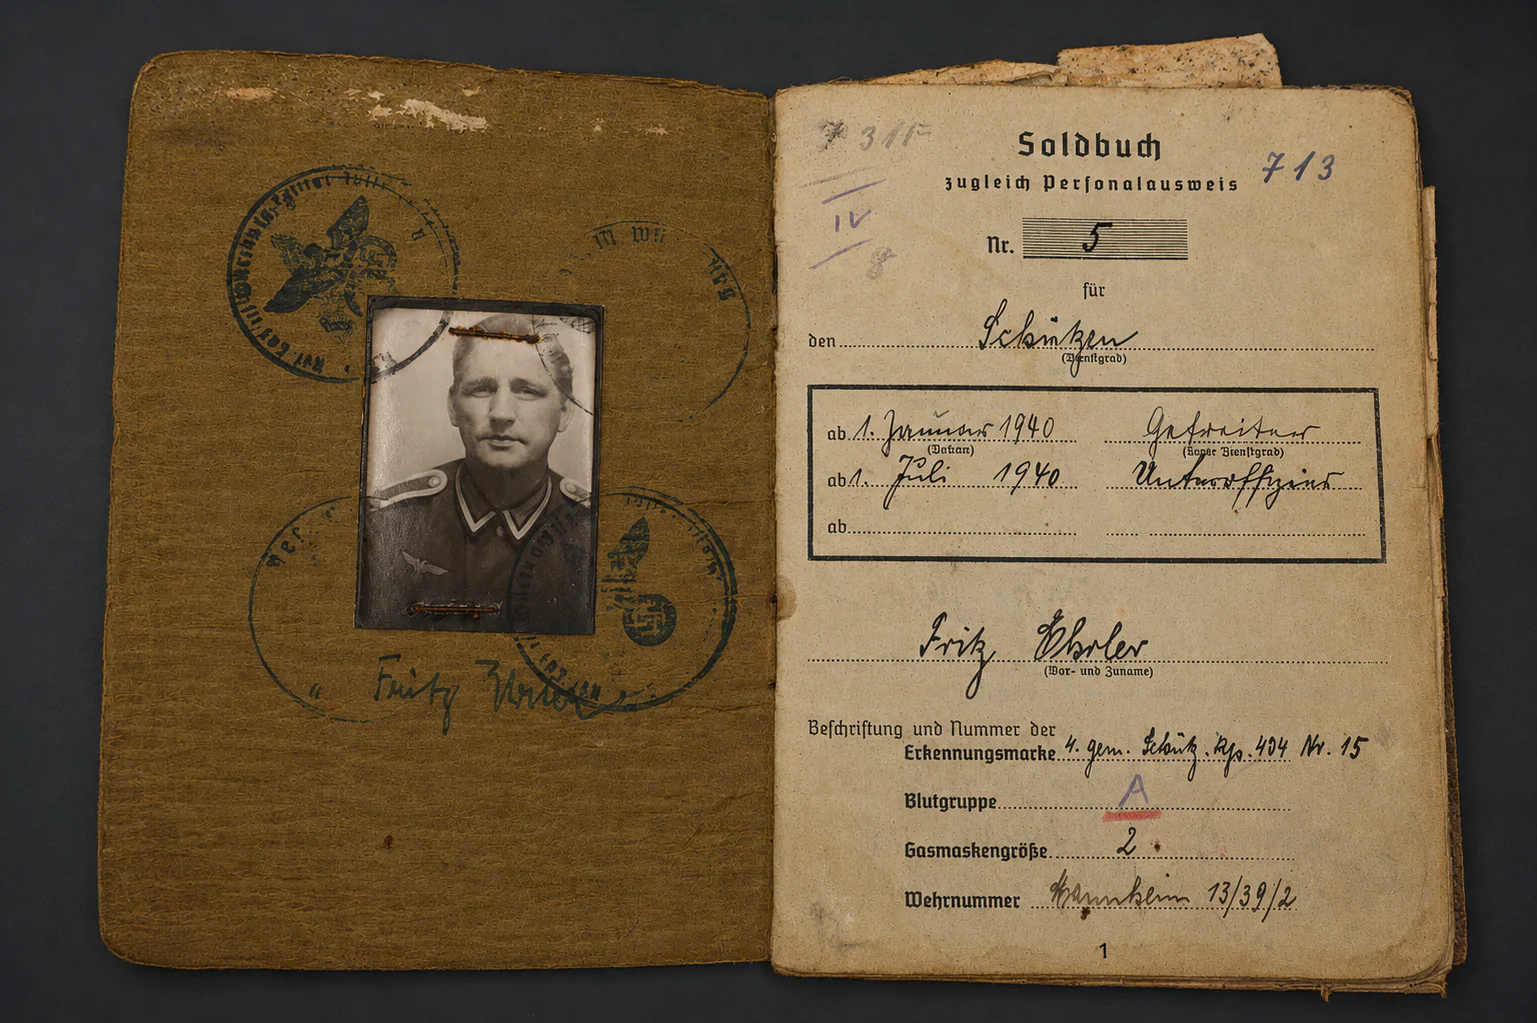 Fritz
7 315
Soldbuch
713
zugleich Personalausweis
IV
Nr. 5
für
den Schützen
(Dienstgrad)
ab 1. Januar 1940 Gefreiter
(Datum) Dienstgrad)
ab 1. Juli 1940 Unteroffizier
ab
Fritz Ehrler
(Vor- und Zuname)
Beschriftung und Nummer der
Erkennungsmarke 4. gem. Schütz. Kp. 434 Nr. 15
Blutgruppe A
Gasmaskengröße 2.
Wehrnummer Mannheim 13/39/2
1